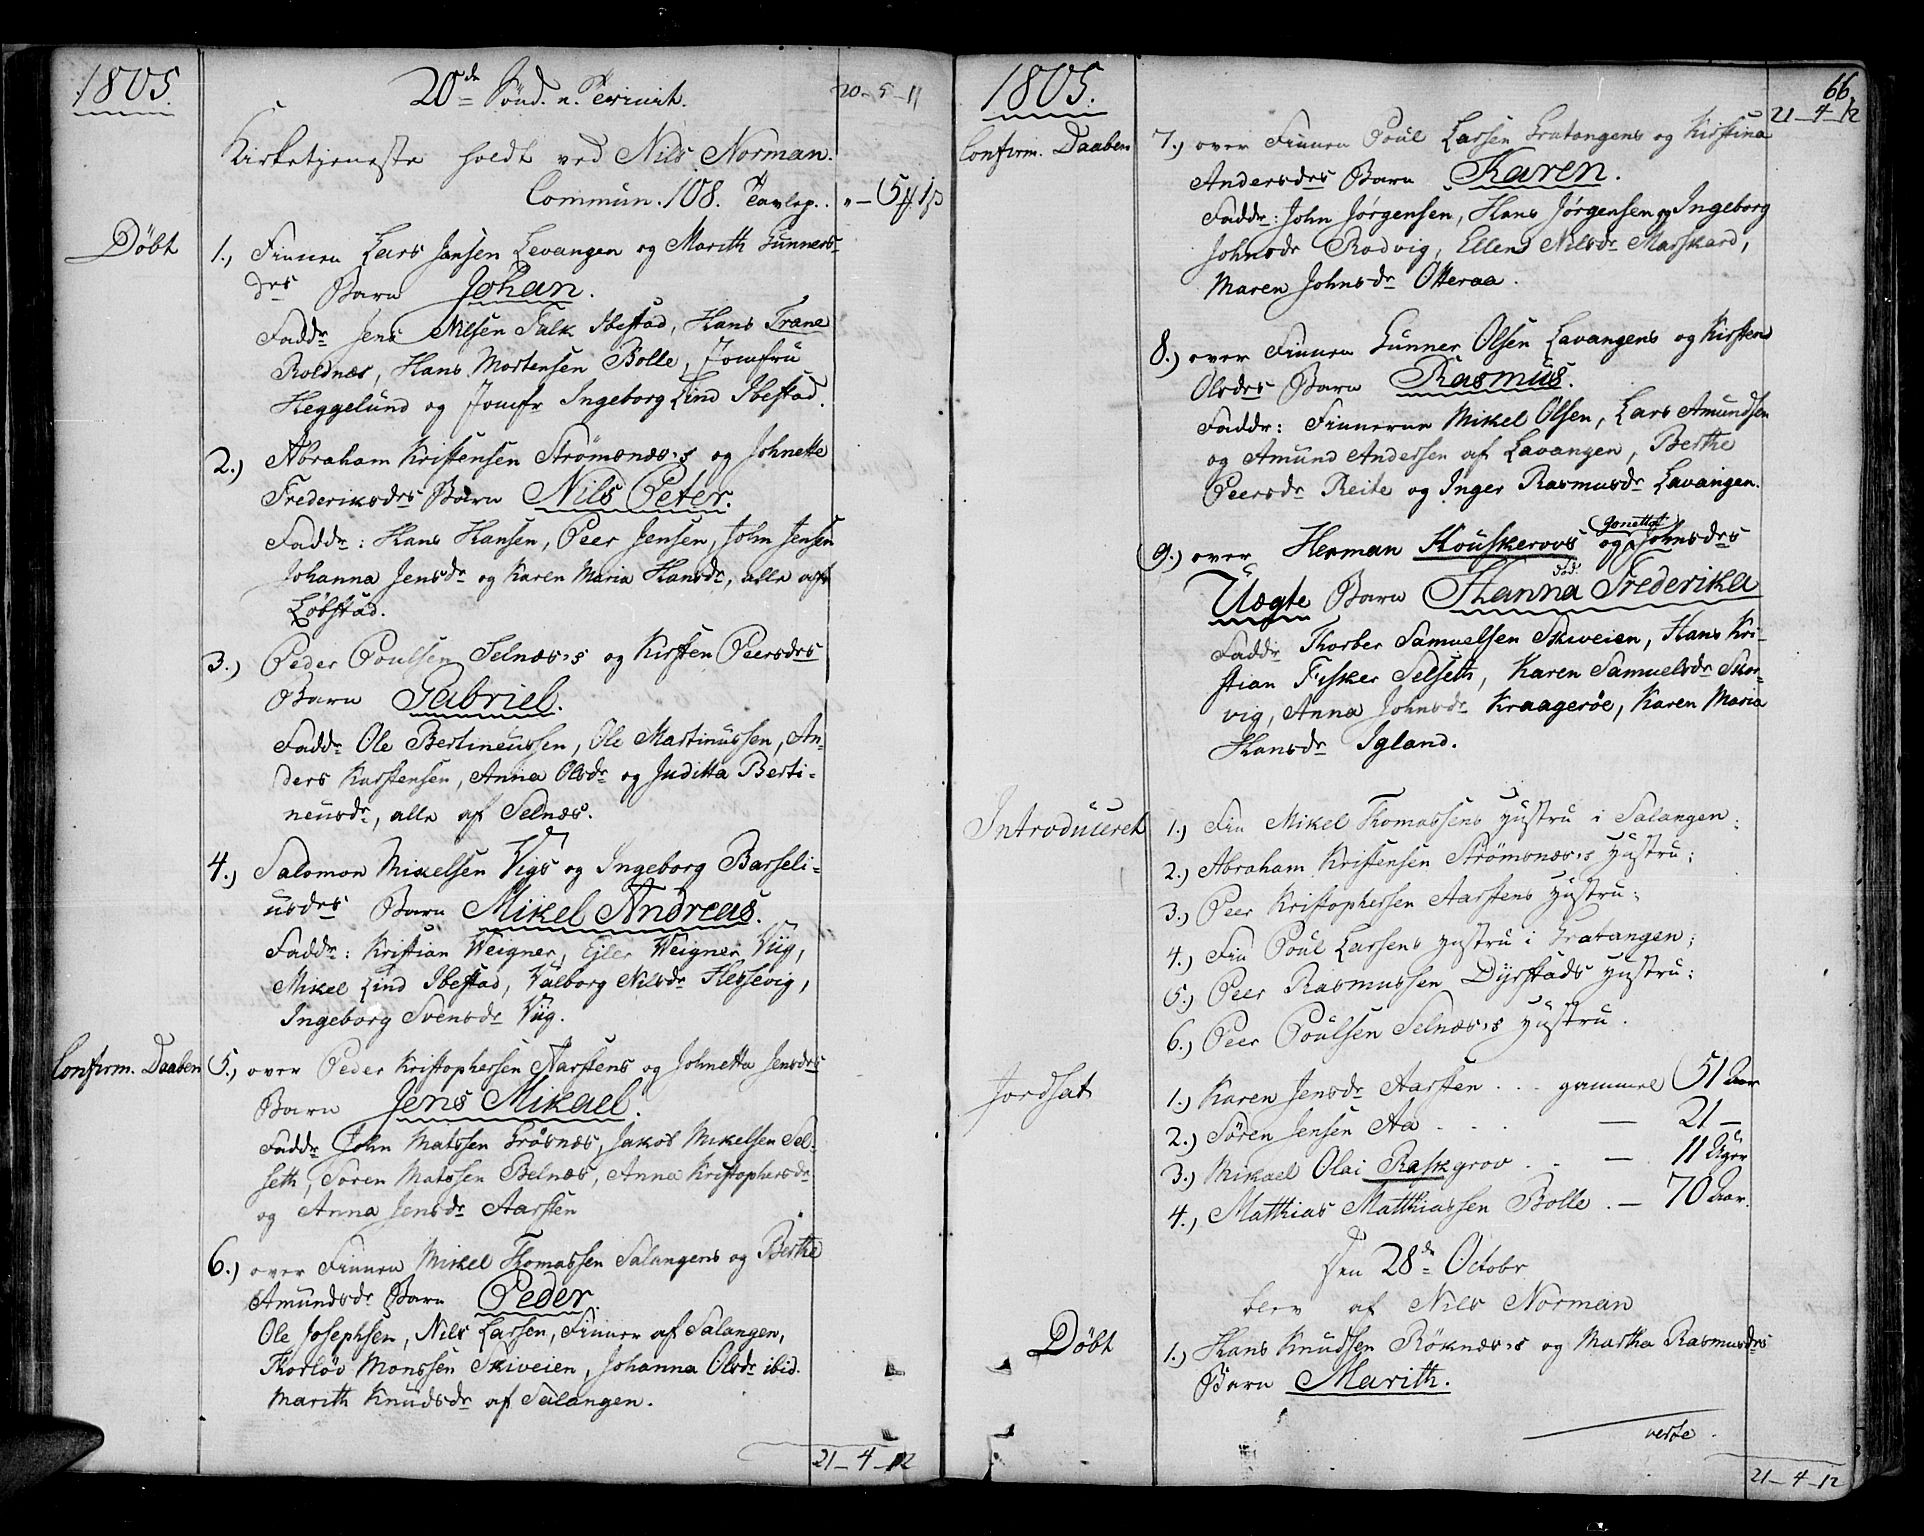 1805.
20de Sönd. n. Trinit.
20 - 5 - 11
Kirketjeneste holdt ved Nils Norman.
Commun. 108. Tavlep. . „ - 5 ƒ 1 ß
Döbt
1., Finnen Lars Jansen Levangen og Marith Gunners-
drs Barn Johan.
Faddr Jens Nilsen Falk Ibestad, Hans Trane
Roldnæs, Hans Mortensen Bolle, Jomfru
Heggelund og Jomfr Ingeborg Lind Ibestad.
2.) Abraham Kristensen Strömsnæs:s og Johnette
Frederiksdrs Barn Nils Peter.
Faddr: Hans Hansen, Peer Jensen, John Jensen
Johanna Jensdr og Karen Maria Hansdr, alle af
Löbstad.
3.) Peder Poulsen Selnæs:s og Kirsten Peersdrs
Barn Gabriel.
Faddr Ole Bertineussen, Ole Martinussen, An-
ders Karstensen, Anna Olsdr og Juditta Berti-
neusdr, alle af Selnæs.
4.) Salomon Mikelsen Vigs og Ingeborg Barseli-
usdrs Barn Mikel Andreas.
Faddr: Kristian Weigner, Ejler Weigner Viig,
Mikel Lind Ibestad, Valborg Nilsdr Hessevig,
Ingeborg Svensdr Viig.
Confirm. Daaben
5., over Peder Kristophersen Aarstens og Johnetta Jensdrs
Barn Jens Mikael.
Faddr John Matssen Grösnæs, Jakob Mikelsen Sel-
seth, Sören Matssen Belnæs, Anna Kristophersdr
og Anna Jensdr Aarsten
6.) over Finnen Mikel Thomassen Salangens og Berthe
Amundsdr Barn Peder.
Ole Josephsen, Nils Larsen, Finner af Salangen,
Thorlöv Monssen Skiveien, Johanna Olsdr ibid.
Marith Knudsdr af Salangen.
21 - 4 - 12
1805.
66.
21 - 4 - 12
Confirm. Daaben
7.) over Finnen Poul Larsen Gratangens og Kirstina
Andersdrs Barn Karen.
Faddr: John Jörgensen, Hans Jörgensen og Ingeborg
Johnsdr Rodvig, Ellen Nilsdr Marskard,
Maren Johnsdr Otteraa.
8.) over Finnen Gunner Olsen Lavangens og Kirsten
Olsdrs Barn Rasmus.
Faddr: Finnerne Mikel Olsen, Lars Amundsen
og Amund Andersen af Lavangen, Berthe
Peersdr Reite og Inger Rasmusdr Lavangen.
9.) over Herman Kouskerovs og Johnsdrs
död.
Uægte Barn Hanna Frederika
Faddr Thorber Samuelsen Skiveien, Hans Kri-
stian Fisker Selseth, Karen Samuelsdr Skor-
vig, Anna Johnsdr Kraageröe, Karen Maria
Hansdr Igland.
Introduceret
1.) Fin Mikel Thomassens Hustru i Salangen;
2.) Abraham Kristensen Strömsnæs:s Hustru;
3.) Peer Kristophersen Aarstens Hustru;
4.) Fin Poul Larsens Hustru i Gratangen;
5.) Peer Rasmussen Dyrstads Hustru;
6.) Peer Poulsen Selnæs:s Hustru.
Jordsat
1.) Karen Jensdr Aarsten . . . gammel 51 Aar
2.) Sören Jensen Aa . . . — 21 —
3.) Mikael Olai Raskgrov . . — 11 Uger
4., Matthias Matthiassen Bolle . — 70 Aar.
Den 28de Octobr
berv af Nils Norman
Döbt
1.) Hans Knudsen Röknæs:s og Martha Rasmusdrs
Barn Marith.
verte.
21 - 4 - 12